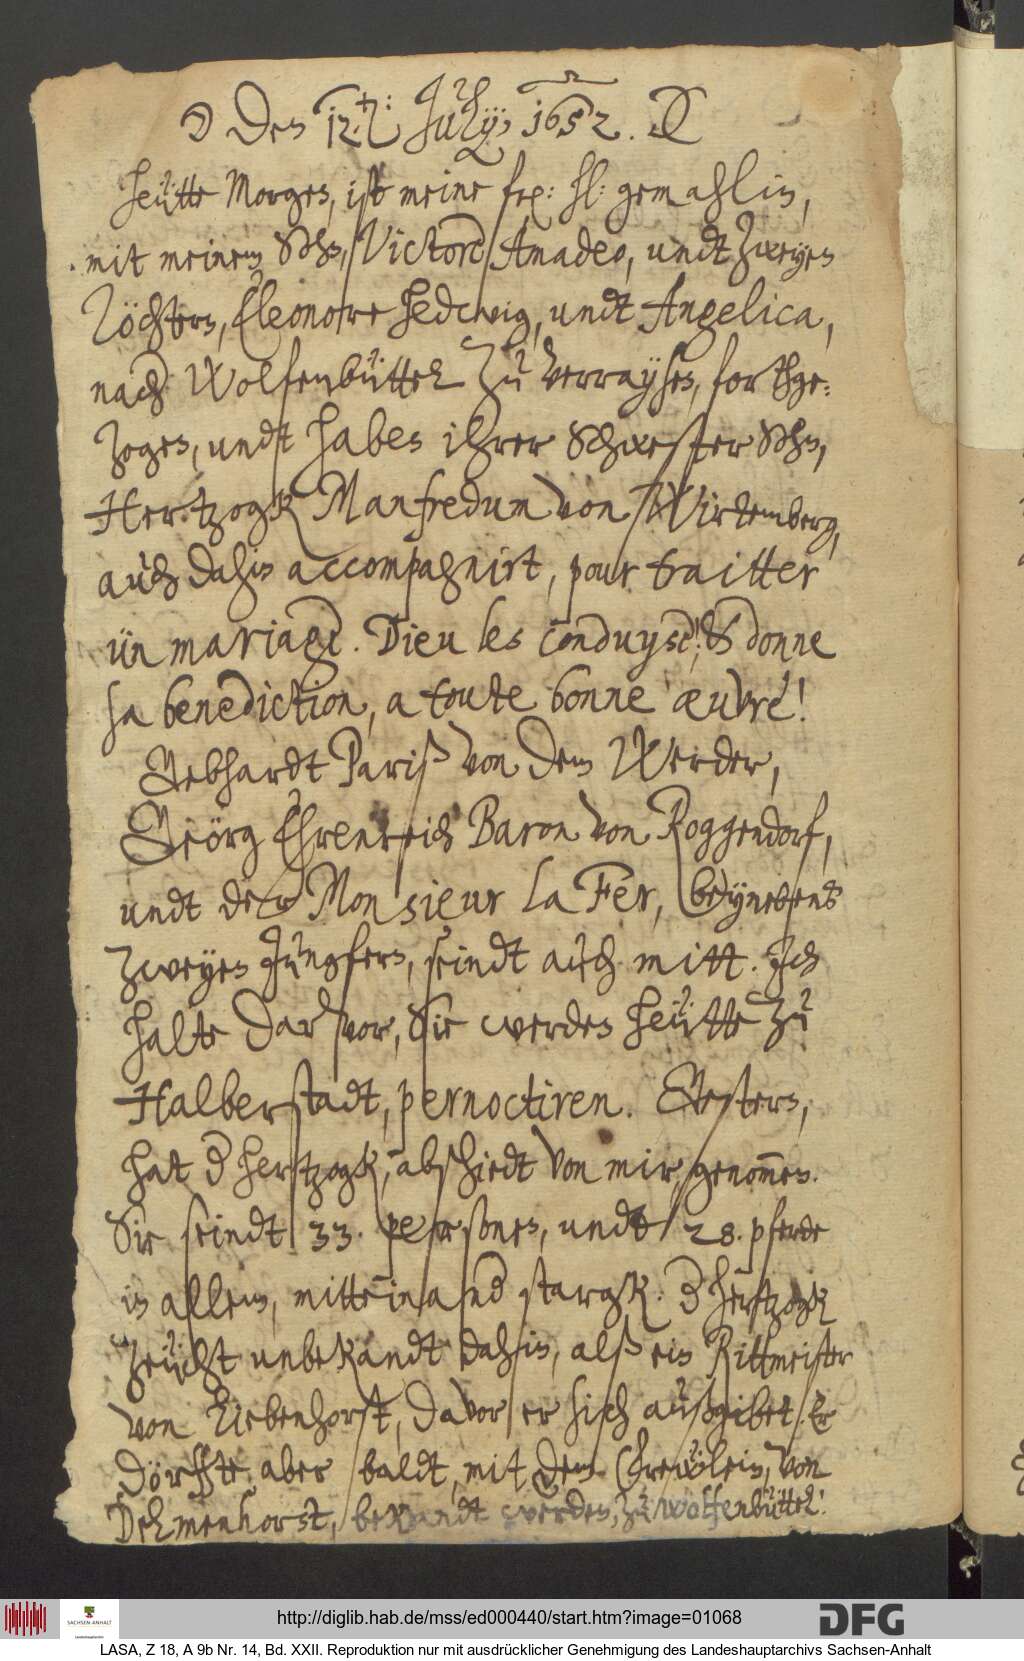 ☽ Den 12.t: Julÿ, 1652. ☾
Heütte Morgen, ist meine frz: hl: gemahlin,
mit meinem Sohn, Victore Amadeo, undt zweyen
Töchtern, Eleonore Hedwig, undt Angelica,
nach Wolfenbüttel zu verraysen, forthge-
zogen, undt haben ihrer Schwester Sohn,
Hertzogk Manfredum von Wirtemberg,
auch dahin accompagnirt, pour traitter
ün mariage. Dieu les conduyse! & donne
sa benediction, a toute bonne œuvre!
Gebhardt Pariß von dem Werder,
Geörg Ehrenreich Baron von Roggendorf,
undt der Monsieur la Fer, beynebens
zweyen Jungfern, seindt auch mitt. Ich
halte darvor, Sie werden heütte zu
Halberstadt, pernoctiren. Gestern,
hat d hertzogk, abschiedt von mir, genom̅en.
Sie seindt 33. personen, undt 28. pferde
in allem, mitteinand stargk. d hertzogk
zeücht unbekandt dahin, alß ein Rittmeister
von Liebenhorst, davor er sich außgibet. Er
dörffte, aber baldt, mit dem Frewlein, von
Delmenhorst, bekandt werden, zu wolfenbüttel!
http://diglib.hab.de/mss/ed000440/start.htm?image=01068
SACHSEN-ANHALT
Landeshauptarchiv
DFG
LASA, Z 18, A 9b Nr. 14, Bd. XXII. Reproduktion nur mit ausdrücklicher Genehmigung des Landeshauptarchivs Sachsen-Anhalt